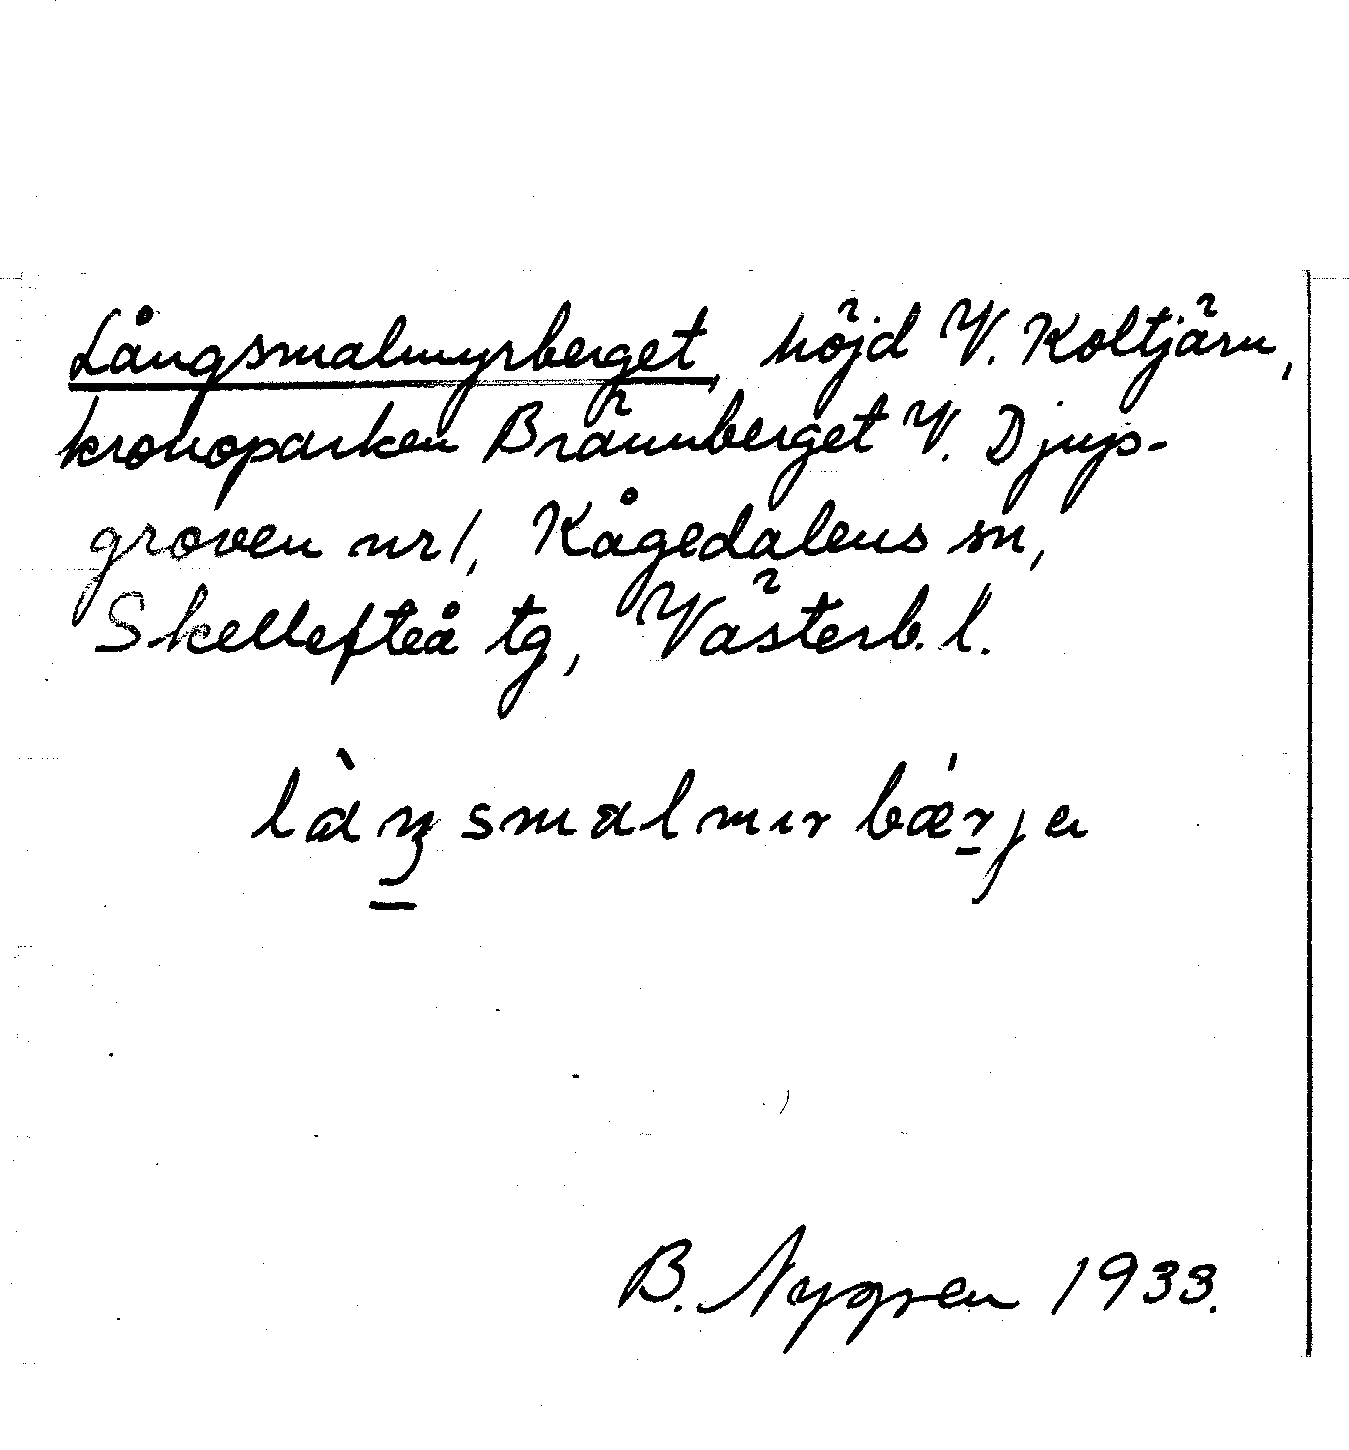 Långsmalmyrberget, höjd V. Koltjärn,
kronoparken Brännberget V. Djup-
groven nr 1, Kågedalens sn,
Skellefteå tg, Västerb. l.
B. Nygren 1933.